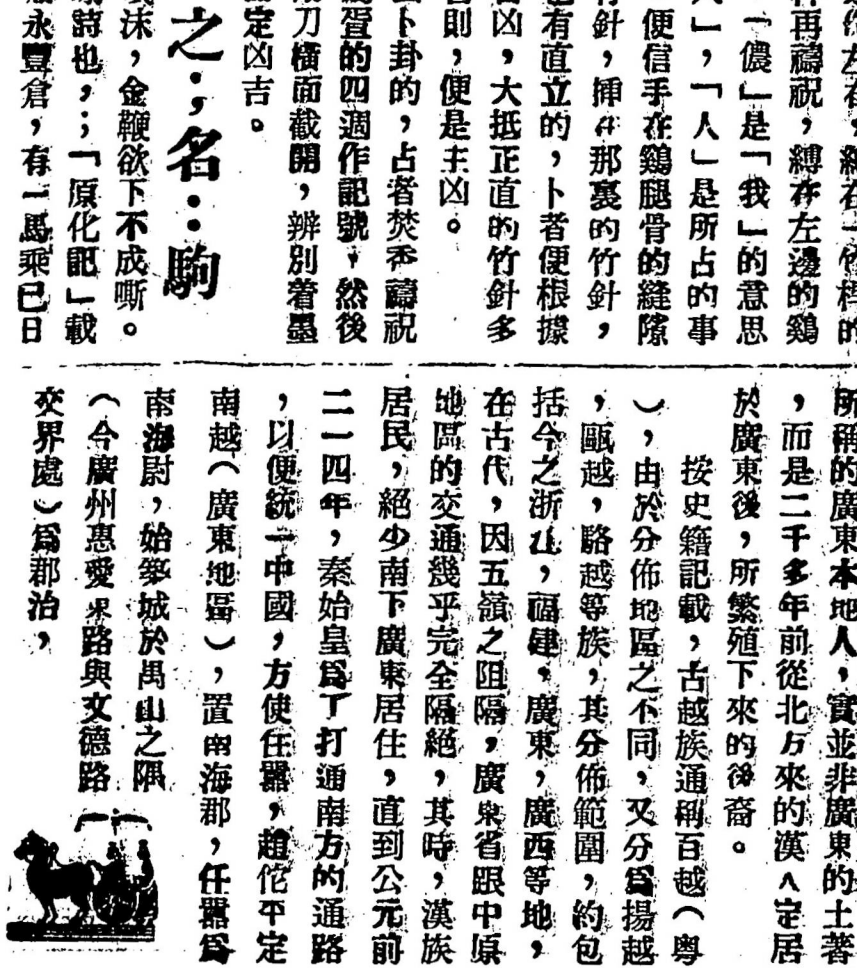 便作左右，縛在一竹桿的
件再禱祝，縛在左邊的鷄
「儂」是「我」的意思
人」，「人」是所占的事
便信手在鷄腿骨的縫隙
竹針，揷在那裏的竹針，
也有直立的，卜者便根據
凶，大抵正直的竹針多
則，便是主凶。
卜卦的，占者焚香禱祝
蛋的四週作記號，然後
刀橫面截開，辨別着墨
定凶吉。
之；名：駒
沫，金鞭欲下不成嘶。
詩也，；「原化記」載
永豐倉，有一馬乘已日
所稱的廣東本地人，實並非廣東的土著
，而是二千多年前從北方來的漢人定居
於廣東後，所繁殖下來的後裔。
按史籍記載，古越族通稱百越（粵
），由於分佈地區之不同，又分爲揚越
，甌越，駱越等族，其分佈範圍，約包
括今之浙江，福建，廣東，廣西等地，
在古代，因五嶺之阻隔，廣東省跟中原
地區的交通幾乎完全隔絕，其時，漢族
居民，絕少南下廣東居住，直到公元前
二一四年，秦始皇爲了打通南方的通路
，以便統一中國，方使任囂，趙佗平定
南越（廣東地區），置南海郡，任囂爲
南海尉，始築城於禺山之隅
（今廣州惠愛東路與文德路
交界處）爲郡治，